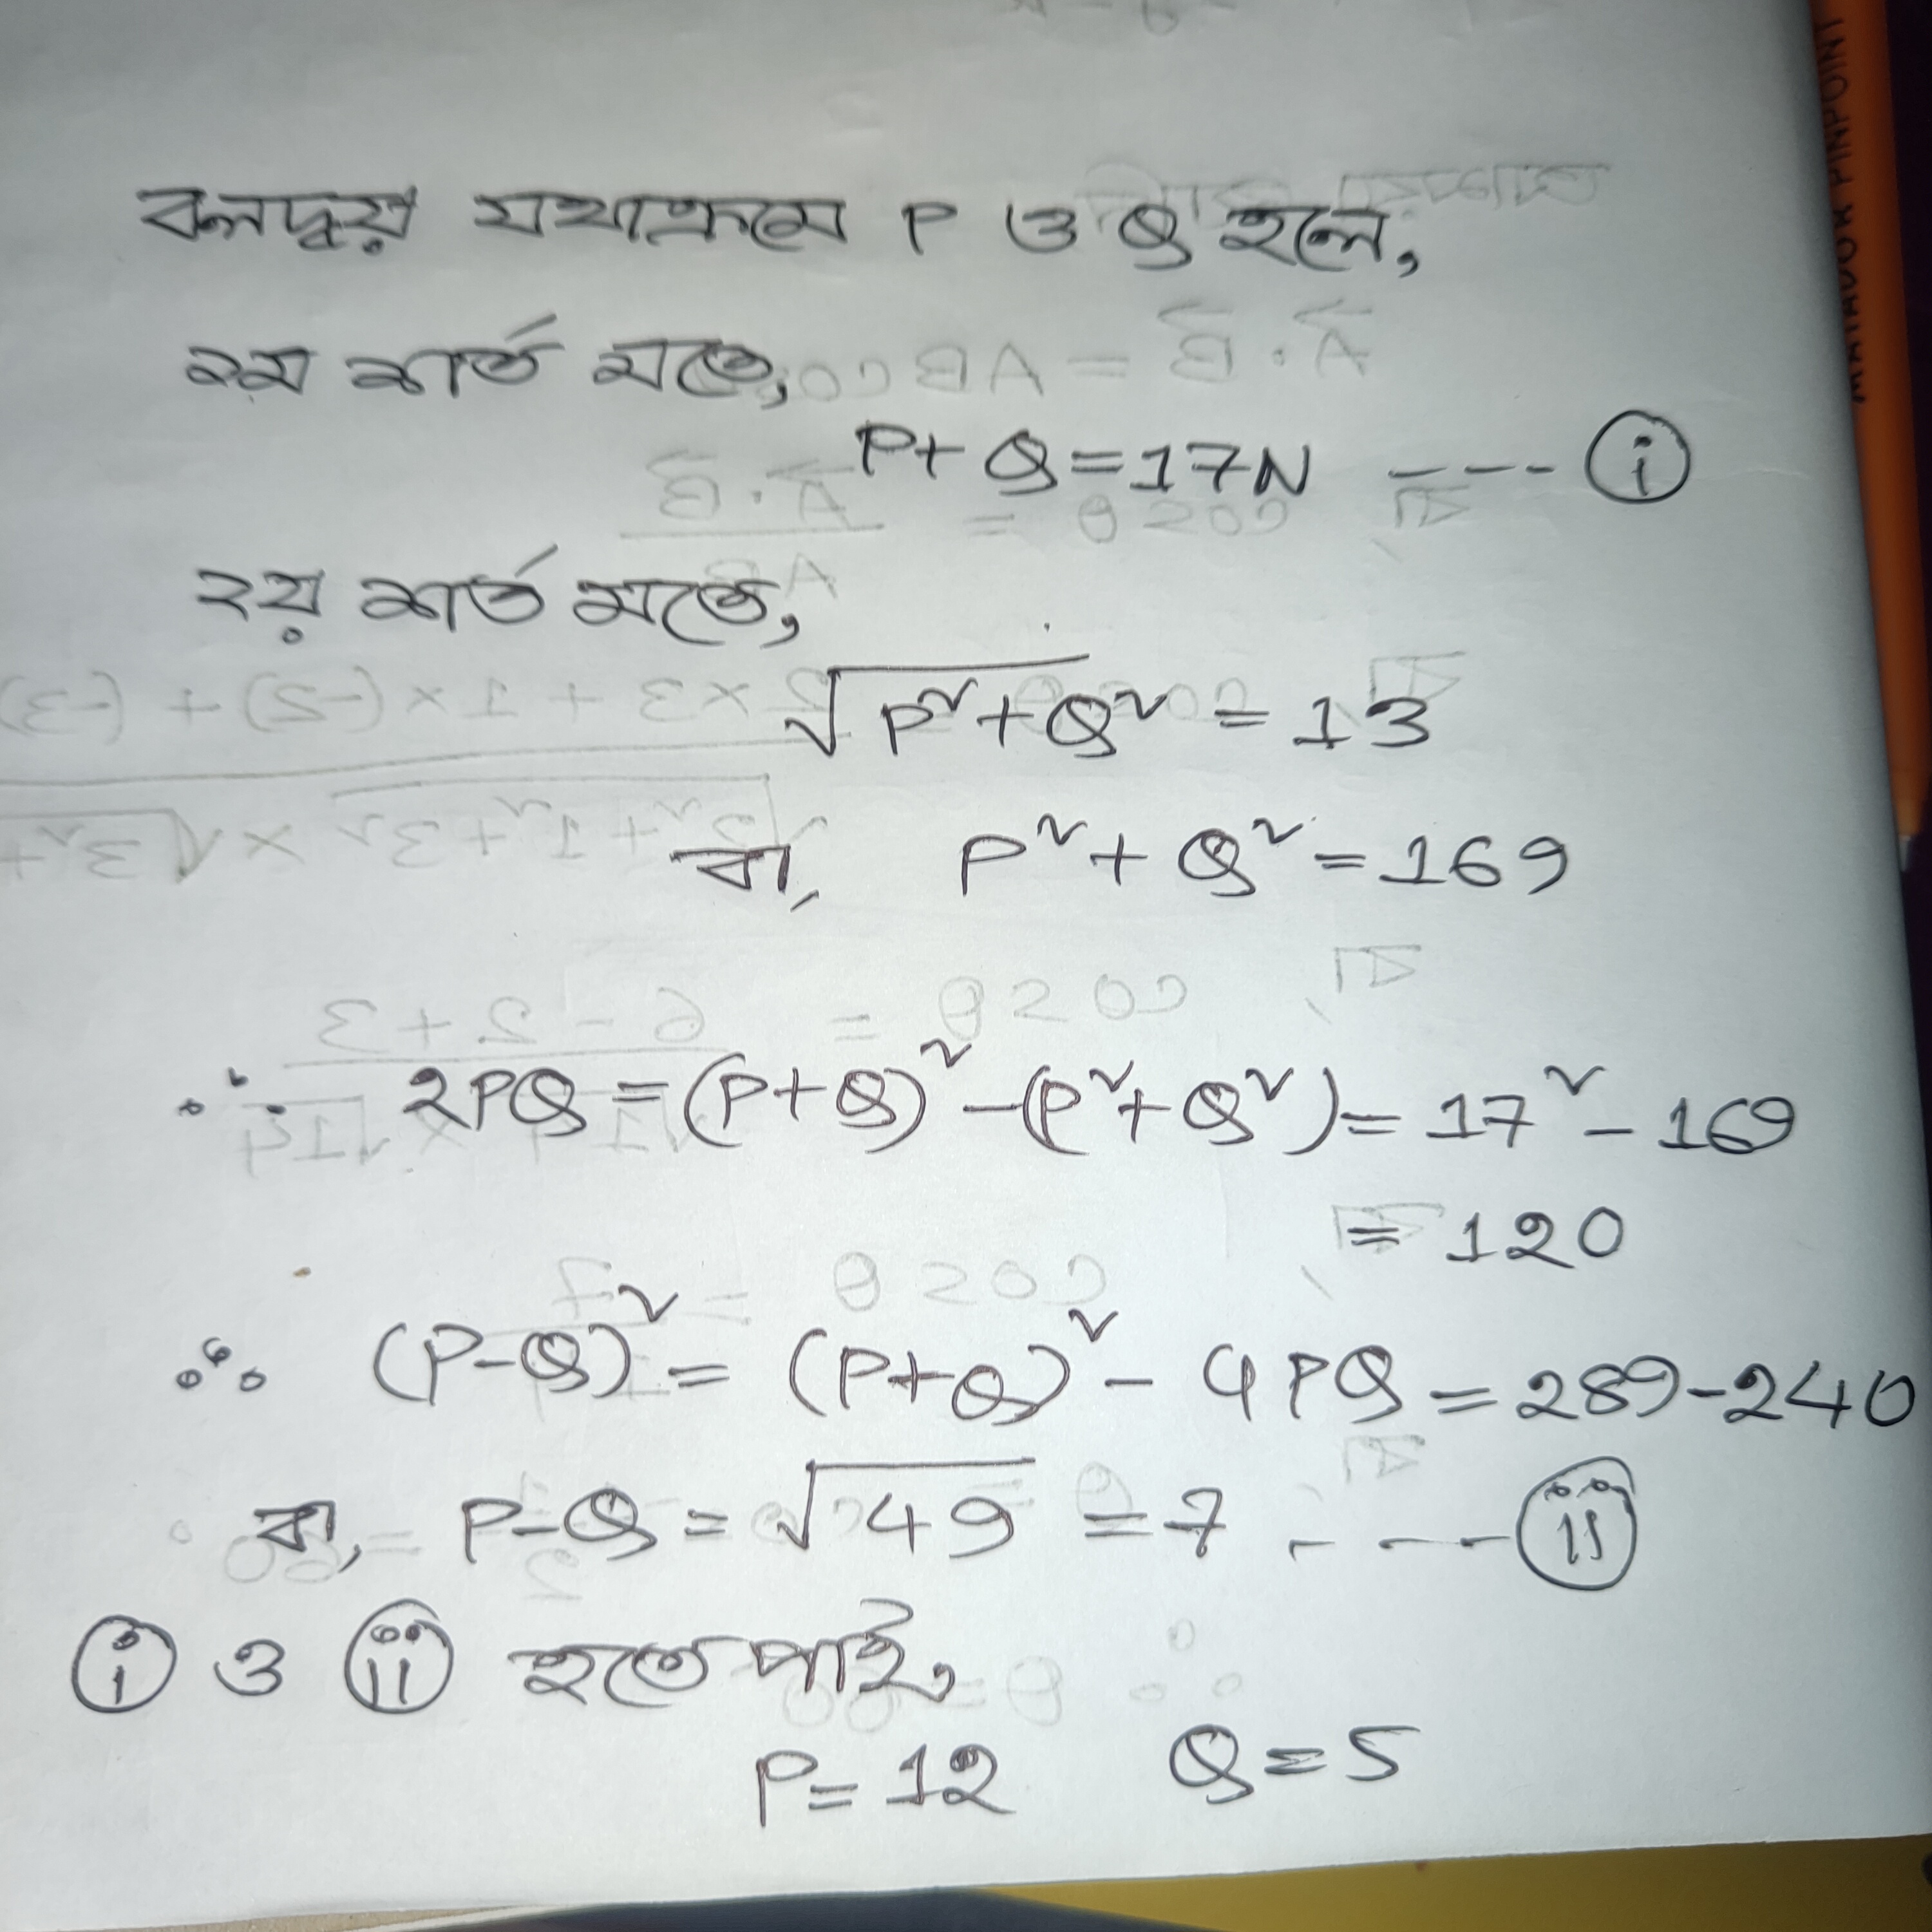 বলদ্বয় যথাক্রমে P ও Q হলে,
১ম শর্ত মতে,
P+Q=17N ---- (i)
২য় শর্ত মতে,
√P²+Q² = 13
বা, P²+Q²=169
∴ 2PQ=(P+Q)²-(P²+Q²)=17²-169
= 120
∴ (P-Q)² = (P+Q)² - 4PQ = 289-240
বা, P-Q = √49 = 7 ---- (ii)
(i) ও (ii) হতে পাই,
P=12 Q=5
MATADOR PINPOINT